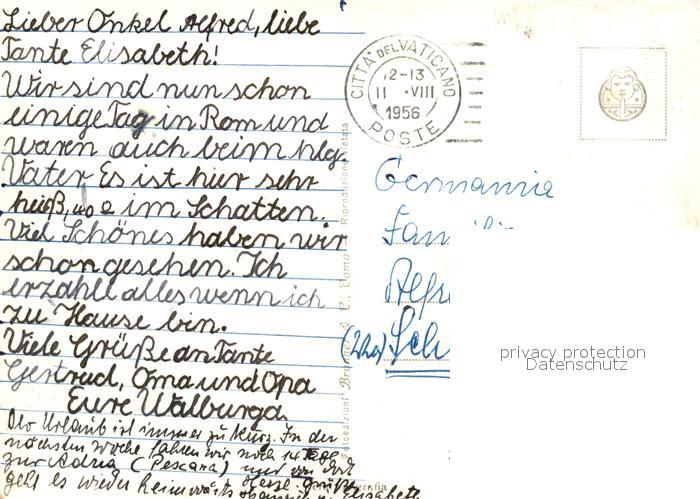 Lieber Onkel Alfred, liebe
Tante Elisabeth!
Wir sind nun schon
einige Tag in Rom und
waren auch beim hlg.
Vater Es ist hier sehr
heiß, 40° im Schatten.
Viel Schönes haben wir
schon gesehen. Ich
erzähle alles wenn ich
zu Hause bin.
Viele Grüße an Tante
Gertrud, Oma und Opa
Eure Walburga.
Der Urlaub ist immer zu kurz. In der
nächsten Woche fahren wir noch 14 Tage
zur Adria (Pescara) und von dort
geht es wieder heimwärts
Elisabeth
CITTÀ DEL VATICANO
12-13
11 ·VIII
1956
POSTE
Riproduzione vietata
Fotoedizioni Brunner & C., Como
Germania
Fam
Alfr
(22a) Sch
privacy protection
Datenschutz